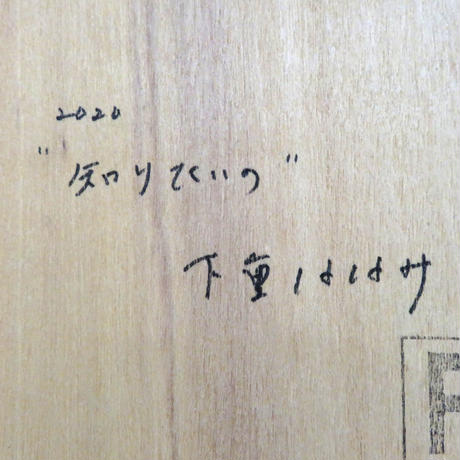 2020
"知りたいの"
下重ははみ
F